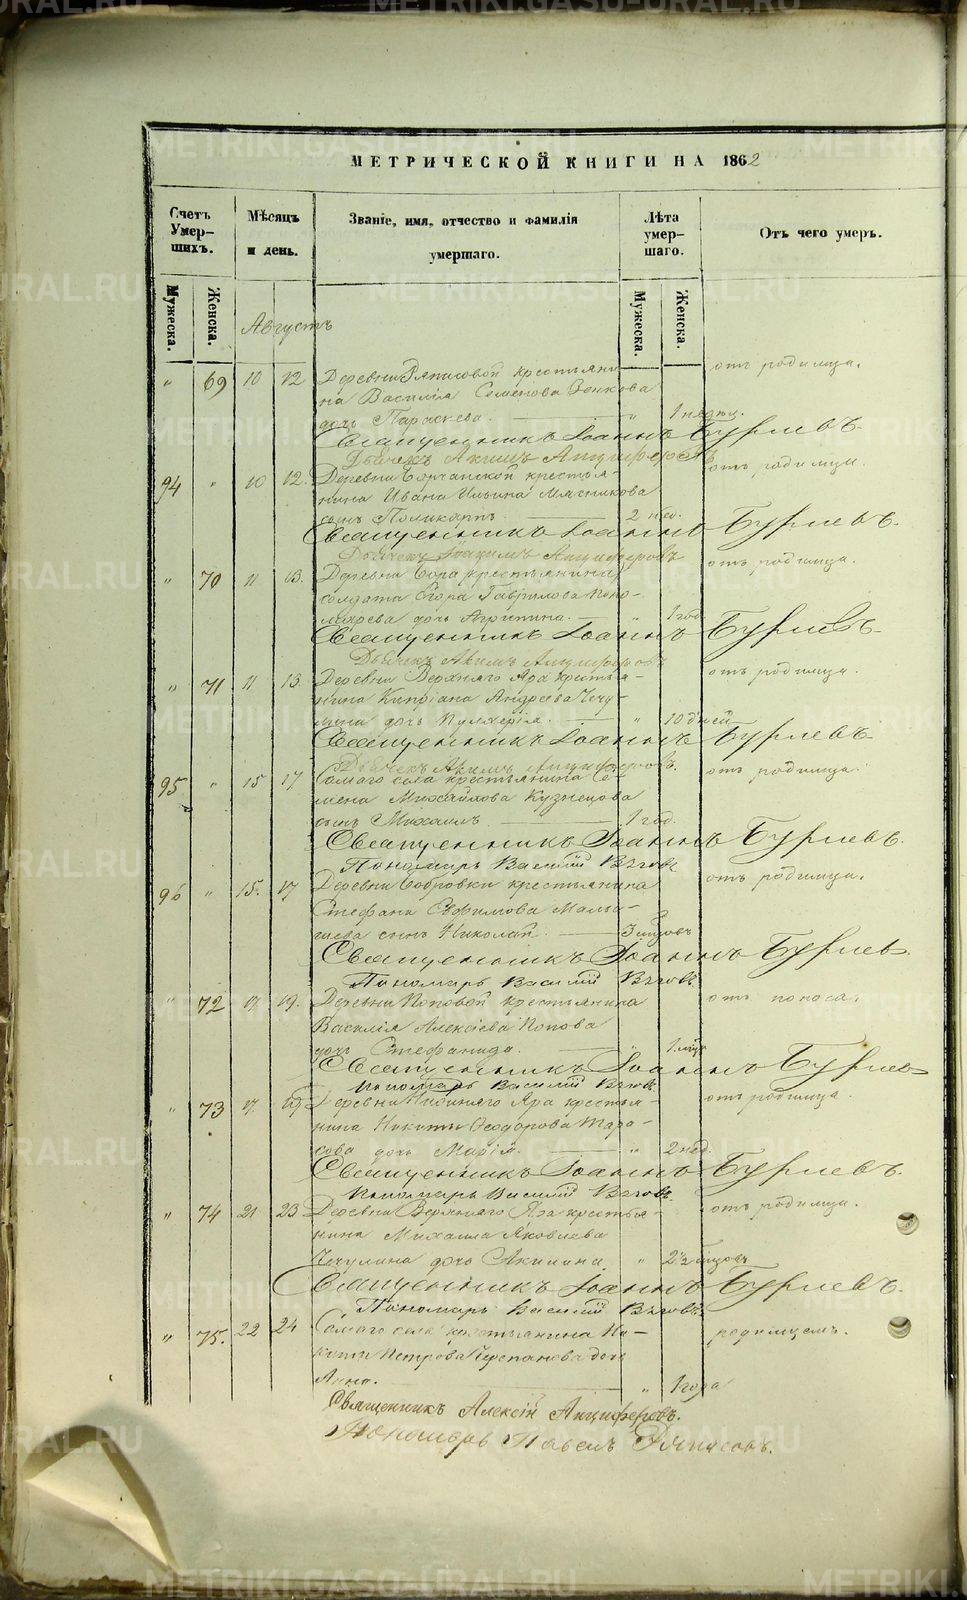 МЕТРИЧЕСКОЙ КНИГИ НА 1862
Счетъ Умер-шихъ.
Мѣсяцъ и день.
Званіе, имя, отчество и фамилія умершаго.
Лѣта умер-шаго.
Отъ чего умеръ.
Мужеска.
Женска.
Мужеска.
Женска.
Августъ
" 69 10 12 Деревни крестьяни-
на Василія Семенова Зенкова
дочь Параскева. " 1 недѣл. отъ родимца.
Священникъ Іоаннъ Бурлевъ
Дьячекъ Акимъ Анциферовъ
94 " 10 12. Деревни крестья-
нина Ивана Ильина Мягчилкова
сынъ Поликарпъ 2 нед. отъ родимца
Священникъ Іоаннъ Бурлевъ.
Дьячекъ Іоакимъ Анциферовъ
" 70 11 13. Деревни Бора крестьянина
солдата Егора Гаврилова Поно-
марева дочь Агрипина. " 1 год. отъ родимца.
Священникъ Іоаннъ Бурлевъ
Дьячекъ Акимъ Анциферовъ
" 71 11 13. Деревни Верхняго Яра крестья-
нина Кипріана Андреева Чечу-
лина дочь Пулхерія. " 10 дней отъ родимца.
Священникъ Іоаннъ Бурлевъ
Дьячекъ Акимъ Анциферовъ.
95 " 15 17 Самаго села крестьянина Се-
мена Михайлова Кузнецова
сынъ Михаилъ 1 год. отъ родимца.
Священникъ Іоаннъ Бурлевъ.
Пономарь Василій
96 " 15. 17 Деревни Бобровки крестьянина
Стефана Евфимова Малы-
гиева сынъ Николай. отъ родимца.
Священникъ Іоаннъ Бурлевъ.
Пономарь Василій
" 72 17. 19. Деревни Поповой крестьянина
Василія Алексіева Попова
дочь Стефанида. " отъ поноса.
Священникъ Іоаннъ Бурлевъ
Пономарь Василій
" 73 17. 19 Деревни Нижняго Яра крестья-
нина Никиты Ѳеодорова Тара-
сова дочь Марія. " 2 нед. отъ родимца.
Священникъ Іоаннъ Бурлевъ.
Пономарь Василій
" 74 21 23 Деревни Верхняго Яра крестья-
нина Михаила Яковлева
Чечулина дочь Акилина. " 2½ годовъ отъ родимца.
Священникъ Іоаннъ Бурлевъ.
Пономарь Василій
" 75. 22 24 Самаго села крестьянина Ни-
киты Петрова Черепанова дочь
Анна. " 1 года родимцемъ.
Священникъ Алексій Анциферовъ.
Пономарь Павелъ Ряписовъ.
METRIKI.GASO-URAL.RU